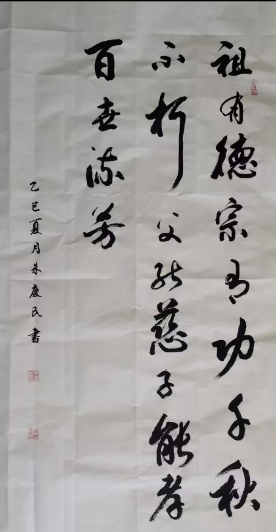 祖有德宗有功千秋
不朽父能慈子能孝
百世流芳
乙巳夏月朱廣民書